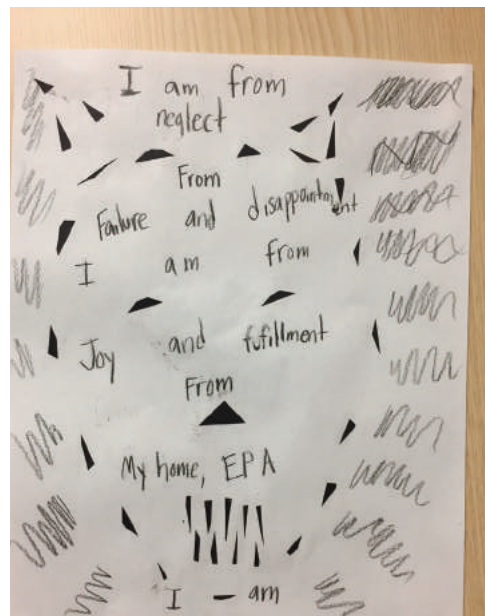 I am from
neglect
From
Failure and disappointment
I am from
Joy and fufillment
From
My home, EPA
I - am